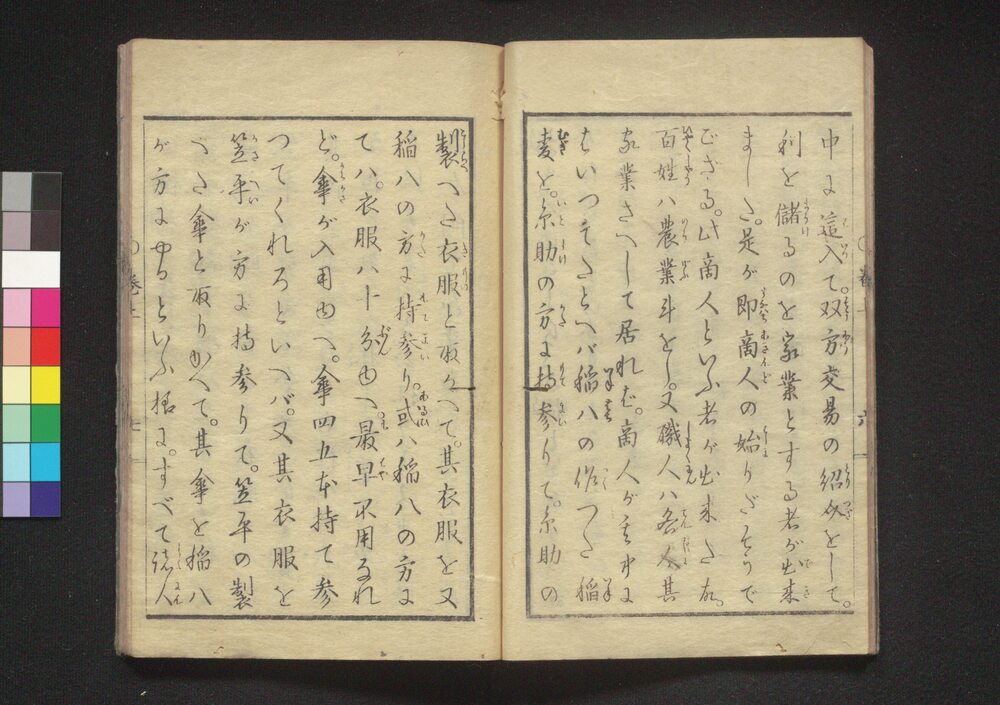 中に這入て。双方交易の紹介をして。
利を儲るのを家業とする者が出来
ました。是が即商人の始りだそうで
ござる。此商人といふ者が出来た故。
百姓ハ農業斗をし。又職人ハ各人其
家業さへして居れバ。商人が其中に
はいつて。たとへバ稲八の作つた稲
麦を。糸助の方に持参りて。糸助の
製へた衣服と取かへて。其衣服を又
稲八の方に持参り。或ハ稲八の方に
てハ。衣服ハ十分ゆへ。最早不用なれ
ど。傘が入用ゆへ。傘四五本持て参
つてくれろといへバ。又其衣服を
笠平が方に持参りて。笠平の製
へた傘と取りかへて。其傘を稲八
が方にやるといふ様に。すべて諸人